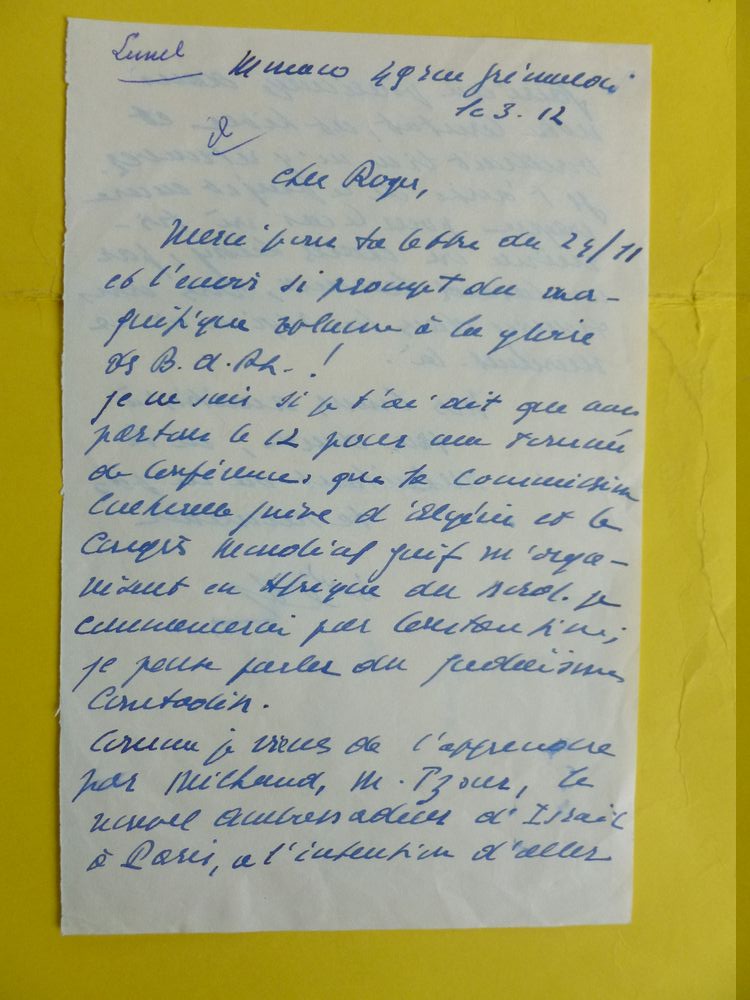 Lunel
Monaco 49 rue Grimaldi
le 3. 12
Cher Roger,
Merci pour ta lettre du 29/11
et l'envoi si prompt du ma-
gnifique volume à la gloire
des B. d. Rh. !
je ne sais si je t'ai dit que nous
partons le 12 pour une tournée
de Conférences que la Commission
Culturelle juive d'Algérie et le
Congrès Mondial juif m'orga-
nisent en Afrique du Nord. je
commencerai par Constantine;
je pense parler du judaïsme
Comtadin.
Comme je viens de l'apprendre
par Milhaud, M. Tzour, le
nouvel ambassadeur d'Israël
à Paris, a l'intention d'aller